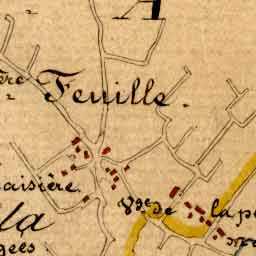 A
Feuille.
aisière.
Vge de la p
la
gées